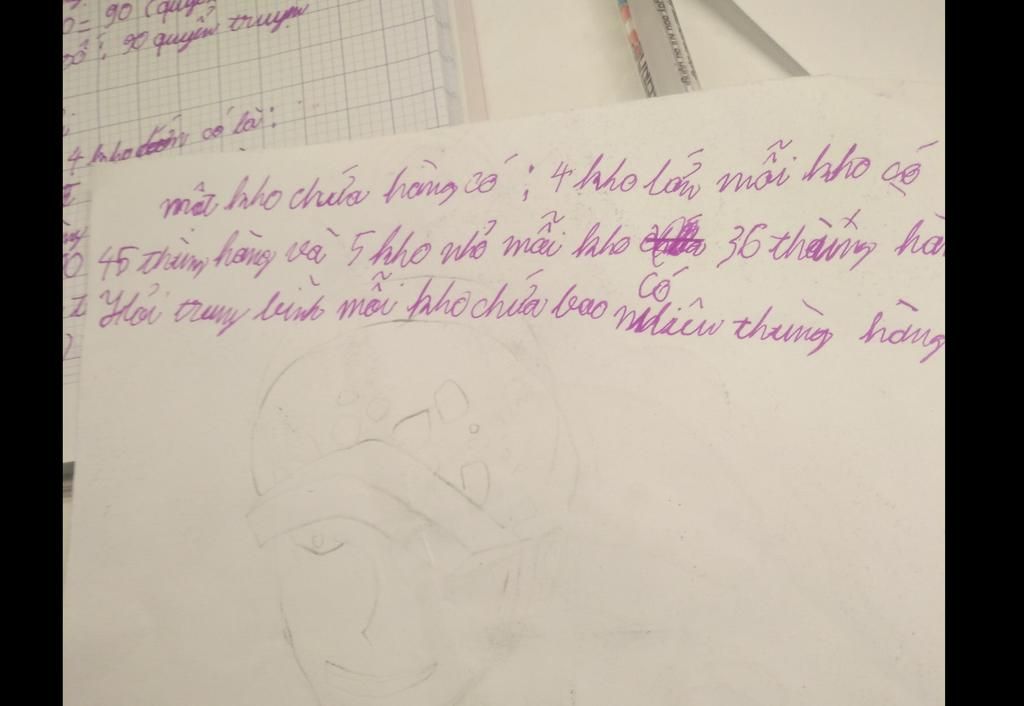 0 = 90 (quyển
số : 90 quyển truyện
4 kho lớn có là :
một kho chứa hàng có : 4 kho lớn mỗi kho có
45 thùng hàng và 5 kho nhỏ mỗi kho có 36 thùng hàn
Hỏi trung bình mỗi kho chứa bao nhiêu thùng hàng